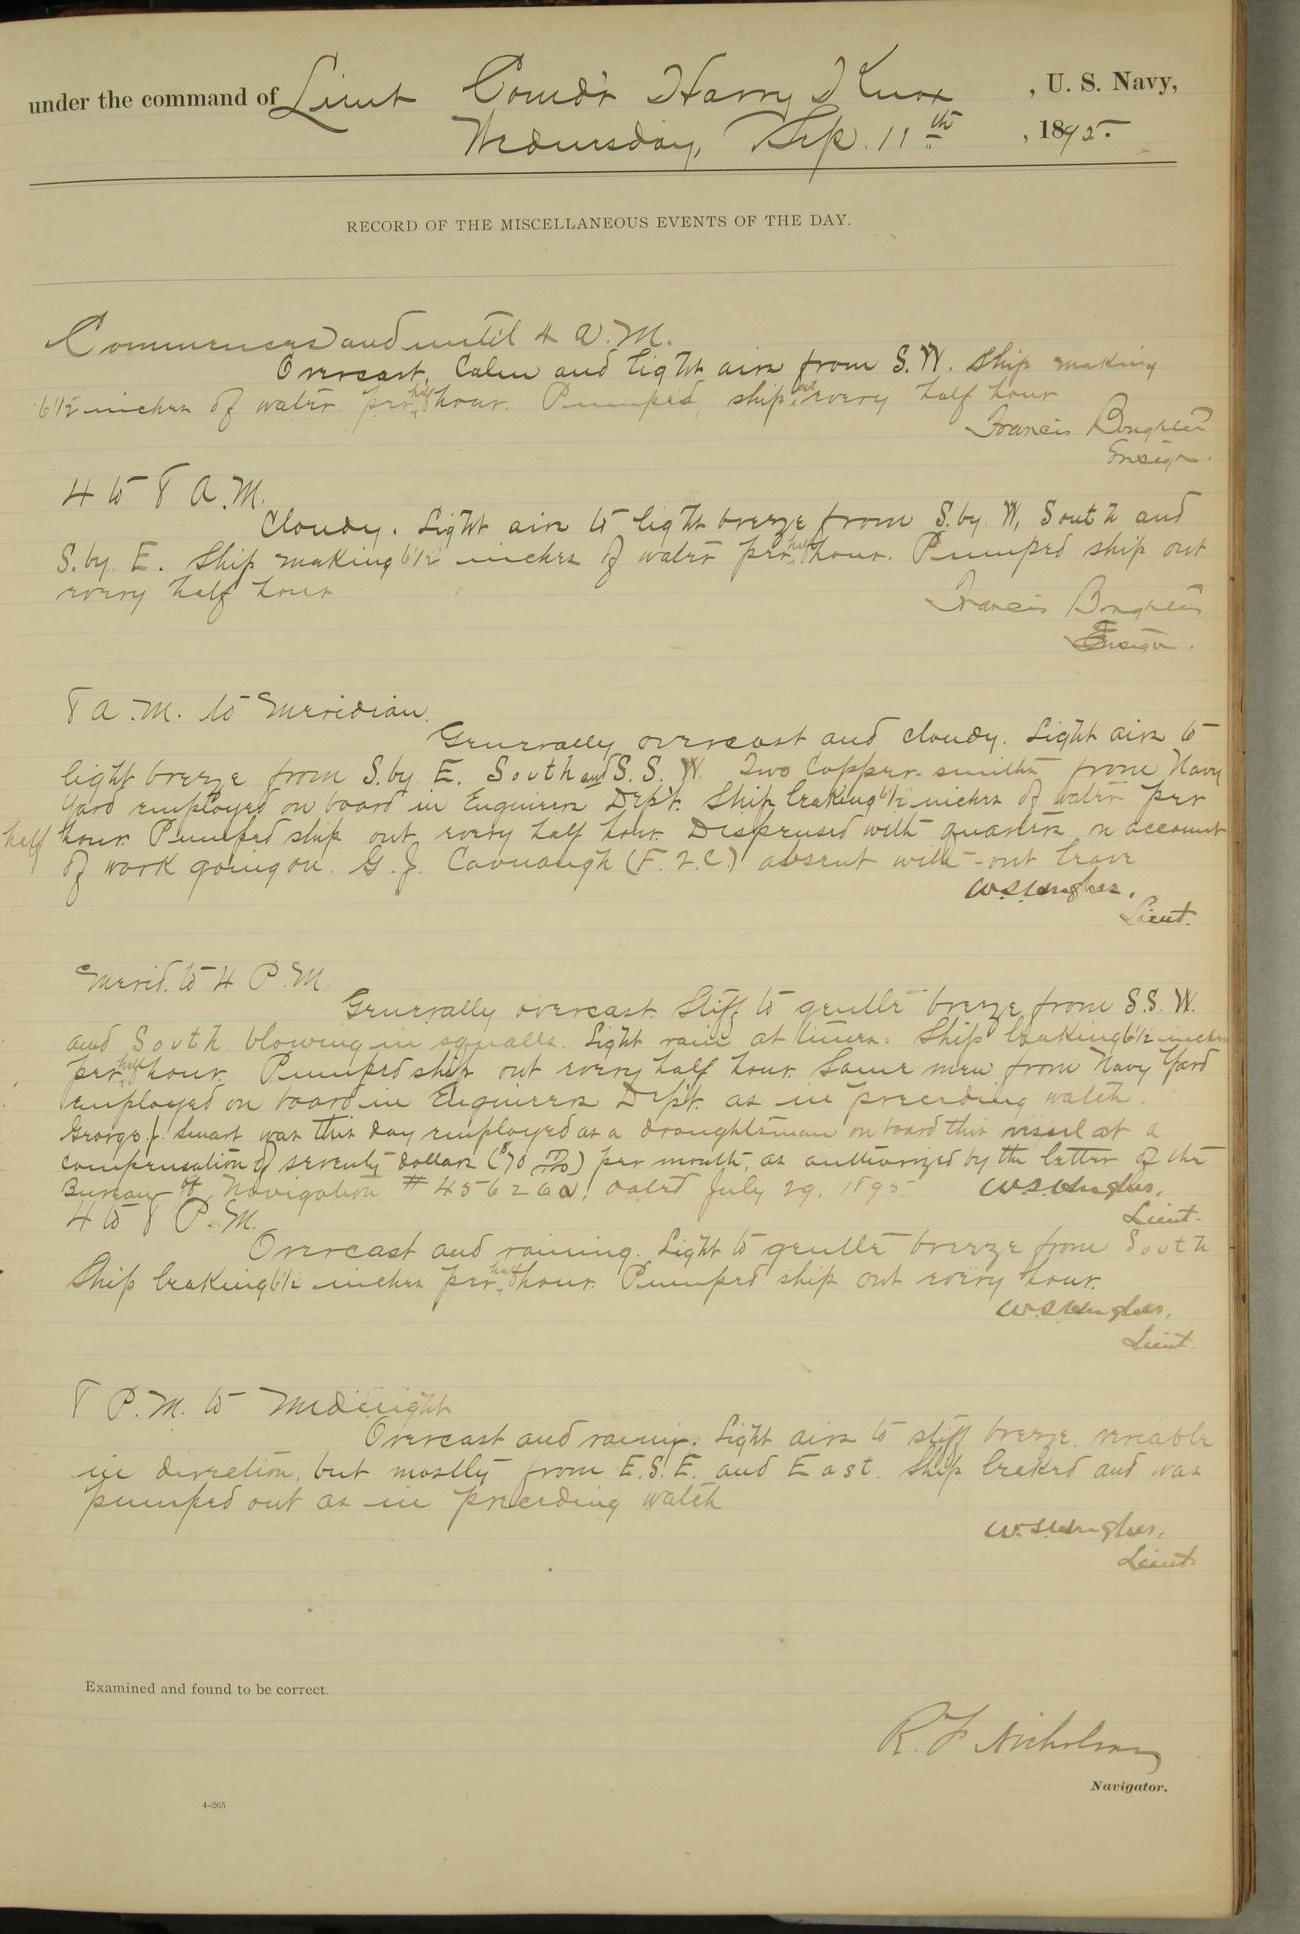 under the command of Lieut Comd'r Harry Knox, U. S. Navy,
Wednesday, Sep. 11th, 1895.
RECORD OF THE MISCELLANEOUS EVENTS OF THE DAY.
Commences and until 4 A.M.
Overcast, Calm and light airs from S.W. Ship making
6 1/2 inches of water per half hour. Pumped ship out every half hour
Francis Boughter
Ensign.
4 to 8 A.M.
Cloudy. Light airs to light breeze from S. by W, South and
S. by E. Ship making 6 1/2 inches of water per half hour. Pumped ship out
every half hour
Francis Boughter
Ensign.
8 A.M. to Meridian.
Generally overcast and cloudy. Light airs to
light breeze from S. by E. South and S. S. W. Two Copper-smiths from Navy
Yard employed on board in Engineers Dep't. Ship leaking 6 1/2 inches of water per
half hour. Pumped ship out every half hour. Dispensed with quarters on account
of work going on. G. J. Cavanaugh (F. 2. C.) absent with-out leave
W.S. Hughes,
Lieut.
Merid. to 4 P.M.
Generally overcast. Stiff to gentle breeze from S.S.W.
and South blowing in squalls. Light rain at times. Ship leaking 6 1/2 inches
per half hour. Pumped ship out every half hour. Same men from Navy Yard
employed on board in Engineers Dep't. as in preceding watch.
George J. Smart was this day employed as a draughtsman on board this vessel at a
compensation of seventy dollars ($70 00/100) per month, as authorized by the letter of the
Bureau of Navigation # 45626, dated July 29, 1895 W.S. Hughes,
Lieut.
4 to 8 P.M.
Overcast and raining. Light to gentle breeze from South
Ship leaking 6 1/2 inches per half hour. Pumped ship out every hour.
W.S. Hughes,
Lieut.
8 P.M. to Midnight
Overcast and rainy. Light airs to stiff breeze variable
in direction, but mostly from E.S.E. and East. Ship leaked and was
pumped out as in preceding watch
W.S. Hughes,
Lieut.
Examined and found to be correct.
R. F. Nicholson
Navigator.
4-265